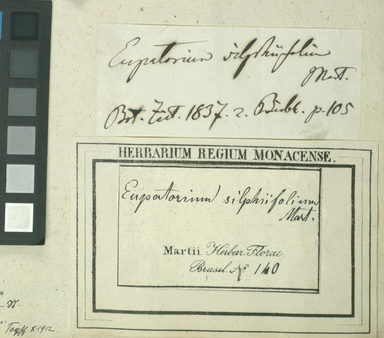 Eupatorium silphiifolium
Mart.
Bot. Zeit. 1837. 2. Beibl. p. 105
HERBARIUM REGIUM MONACENSE.
Eupatorium silphiifolium
Mart.
Martii Herbar. Florae
Brasil. No 140
X.1912